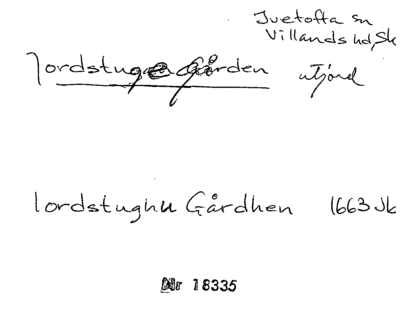 Ivetofta sn
Villands hd, Sk
Jordstuge Gården utjord
Iordstughu Gårdhen 1663 Jb
Nr 18335